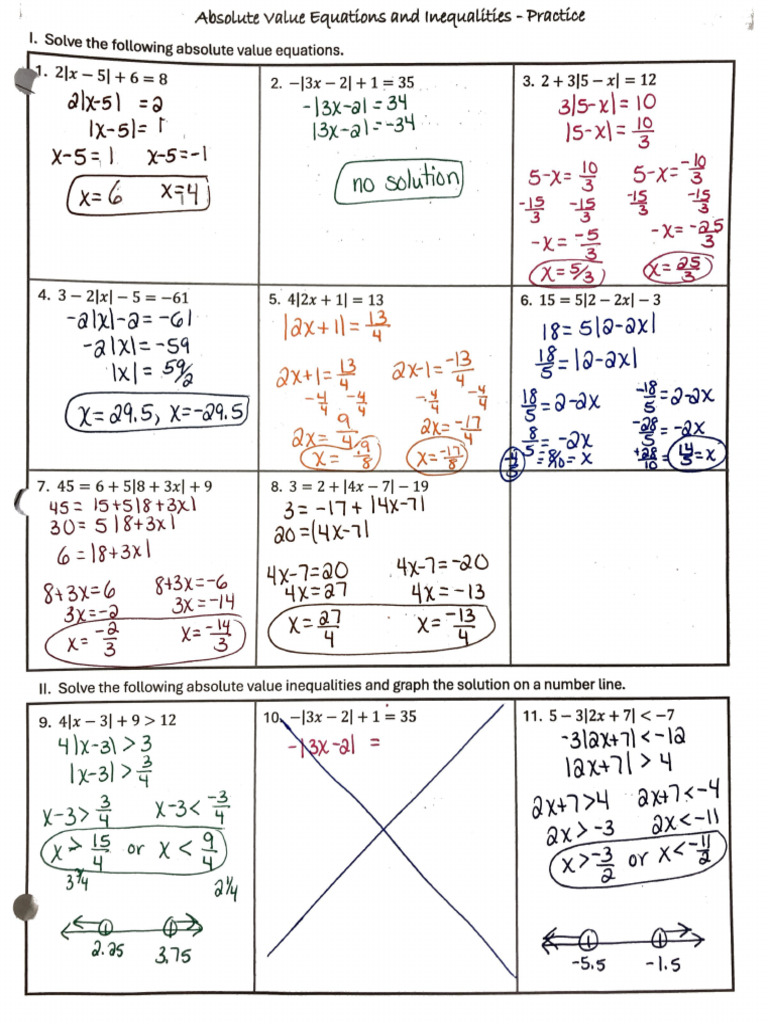 Absolute Value Equations and Inequalities - Practice
I. Solve the following absolute value equations.
1. 2|x − 5| + 6 = 8
2|x-5| = 2
|x-5| = 1
x-5=1 x-5=-1
x=6 x=4
2. −|3x − 2| + 1 = 35
-|3x-2| = 34
|3x-2| = -34
no solution
3. 2 + 3|5 − x| = 12
3|5-x| = 10
|5-x| = 10/3
5-x = 10/3 5-x = -10/3
-15/3 -15/3 -15/3 -15/3
-x = -5/3 -x = -25/3
x = 5/3 x = 25/3
4. 3 − 2|x| − 5 = −61
-2|x|-2 = -61
-2|x| = -59
|x| = 59/2
x = 29.5, x = -29.5
5. 4|2x + 1| = 13
|2x+1| = 13/4
2x+1 = 13/4 2x-1 = -13/4
-4/4 -4/4 -4/4 -4/4
2x = 9/4 2x = -17/4
x = 9/8 x = -17/8
6. 15 = 5|2 − 2x| − 3
18 = 5|2-2x|
18/5 = |2-2x|
18/5 = 2-2x -18/5 = 2-2x
8/5 = -2x -28/5 = -2x
-4/5 = 8/10 = x +28/10 = 14/5 = x
7. 45 = 6 + 5|8 + 3x| + 9
45 = 15+5|8+3x|
30 = 5|8+3x|
6 = |8+3x|
8+3x=6 8+3x=-6
3x=-2 3x=-14
x = -2/3 x = -14/3
8. 3 = 2 + |4x − 7| − 19
3 = -17 + |4x-7|
20 = |4x-7|
4x-7=20 4x-7=-20
4x=27 4x = -13
x = 27/4 x = -13/4
II. Solve the following absolute value inequalities and graph the solution on a number line.
9. 4|x − 3| + 9 > 12
4|x-3| > 3
|x-3| > 3/4
x-3 > 3/4 x-3 < -3/4
x > 15/4 or x < 9/4
3 3/4 2 1/4
2.25 3.75
10. −|3x − 2| + 1 = 35
-|3x-2| =
11. 5 − 3|2x + 7| < −7
-3|2x+7| < -12
|2x+7| > 4
2x+7>4 2x+7<-4
2x > -3 2x < -11
x > -3/2 or x < -11/2
-5.5 -1.5